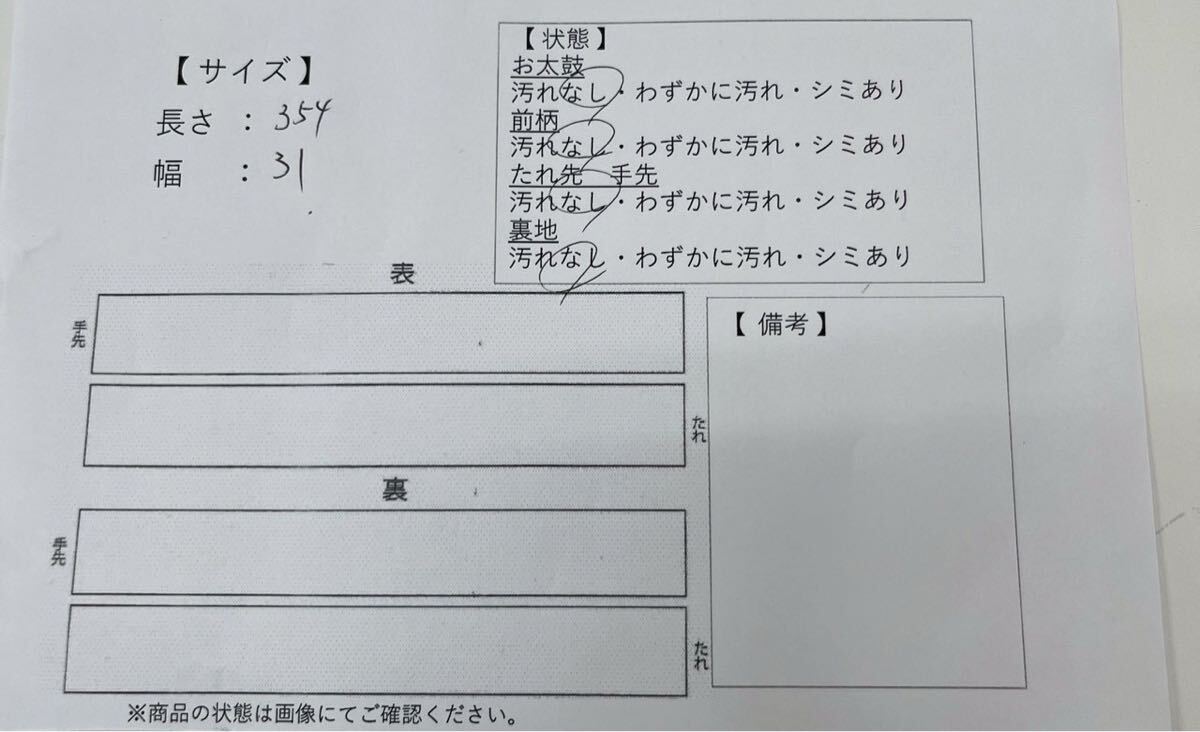 【サイズ】
長さ ： 354
幅 ： 31
【状態】
お太鼓
汚れなし・わずかに汚れ・シミあり
前柄
汚れなし・わずかに汚れ・シミあり
たれ先 手先
汚れなし・わずかに汚れ・シミあり
裏地
汚れなし・わずかに汚れ・シミあり
表
手先
たれ
裏
手先
たれ
【備考】
※商品の状態は画像にてご確認ください。